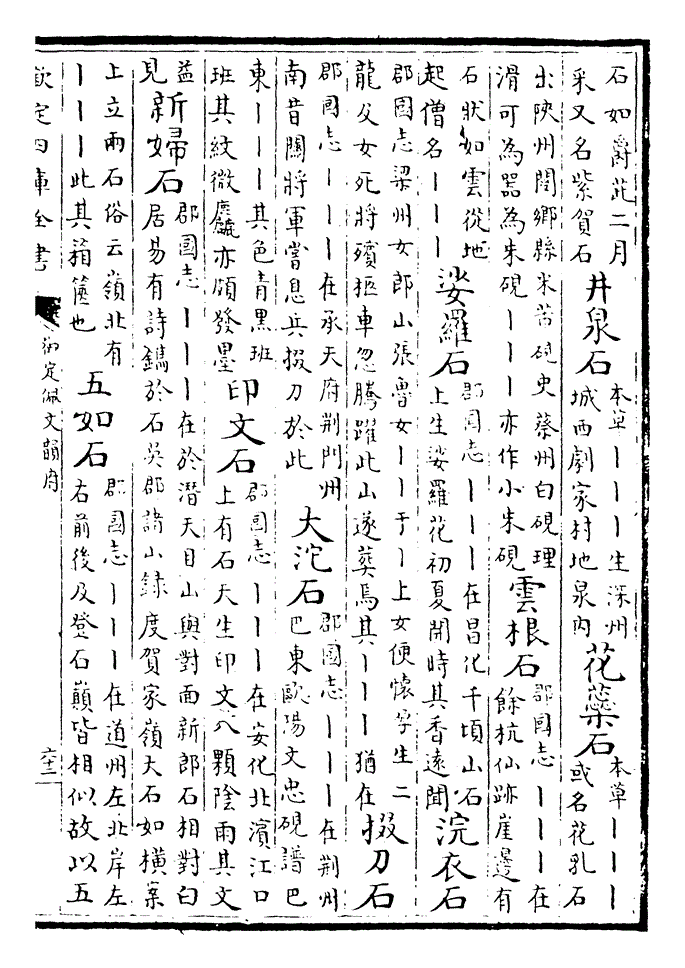 石如爵茈二月
采又名紫賀石
井泉石
本草｜｜｜生深州
城西劇家村地泉内
花蘂石
本草｜｜｜
或名花乳石
出陝州閿鄉縣米芾硯史蔡州白硯理
滑可為器為朱硯｜｜｜亦作小朱硯
雲根石
郡國志｜｜｜在
餘杭仙跡崖邊有
石狀如雲從地
起僧名｜｜｜
娑羅石
郡國志｜｜｜在昌化千頃山石
上生娑羅花初夏開時其香遠聞
浣衣石
郡國志梁州女郎山張魯女｜｜于｜上女便懷孕生二
龍父女死將殯柩車忽騰躍此山遂葬焉其｜｜｜猶在
掇刀石
郡國志｜｜｜在承天府荆門州
南昔關將軍嘗息兵掇刀於此
大沱石
郡國志｜｜｜在荆州
巴東歐陽文忠硯譜巴
東｜｜｜其色青黑班
班其紋微麤亦頗發墨
印文石
郡國志｜｜｜在安化北濱江口
上有石天生印文八顆陰雨其文
益
見
新婦石
郡國志｜｜｜在於潛天目山與對面新郎石相對白
居易有詩鐫於石吳郡諸山錄度賀家嶺大石如橫案
上立兩石俗云嶺北有
｜｜｜此其箱篋也
五如石
郡國志｜｜｜在道州左北岸左
右前後及登石巔皆相似故以五
欽定四庫全書
御定佩文韻府